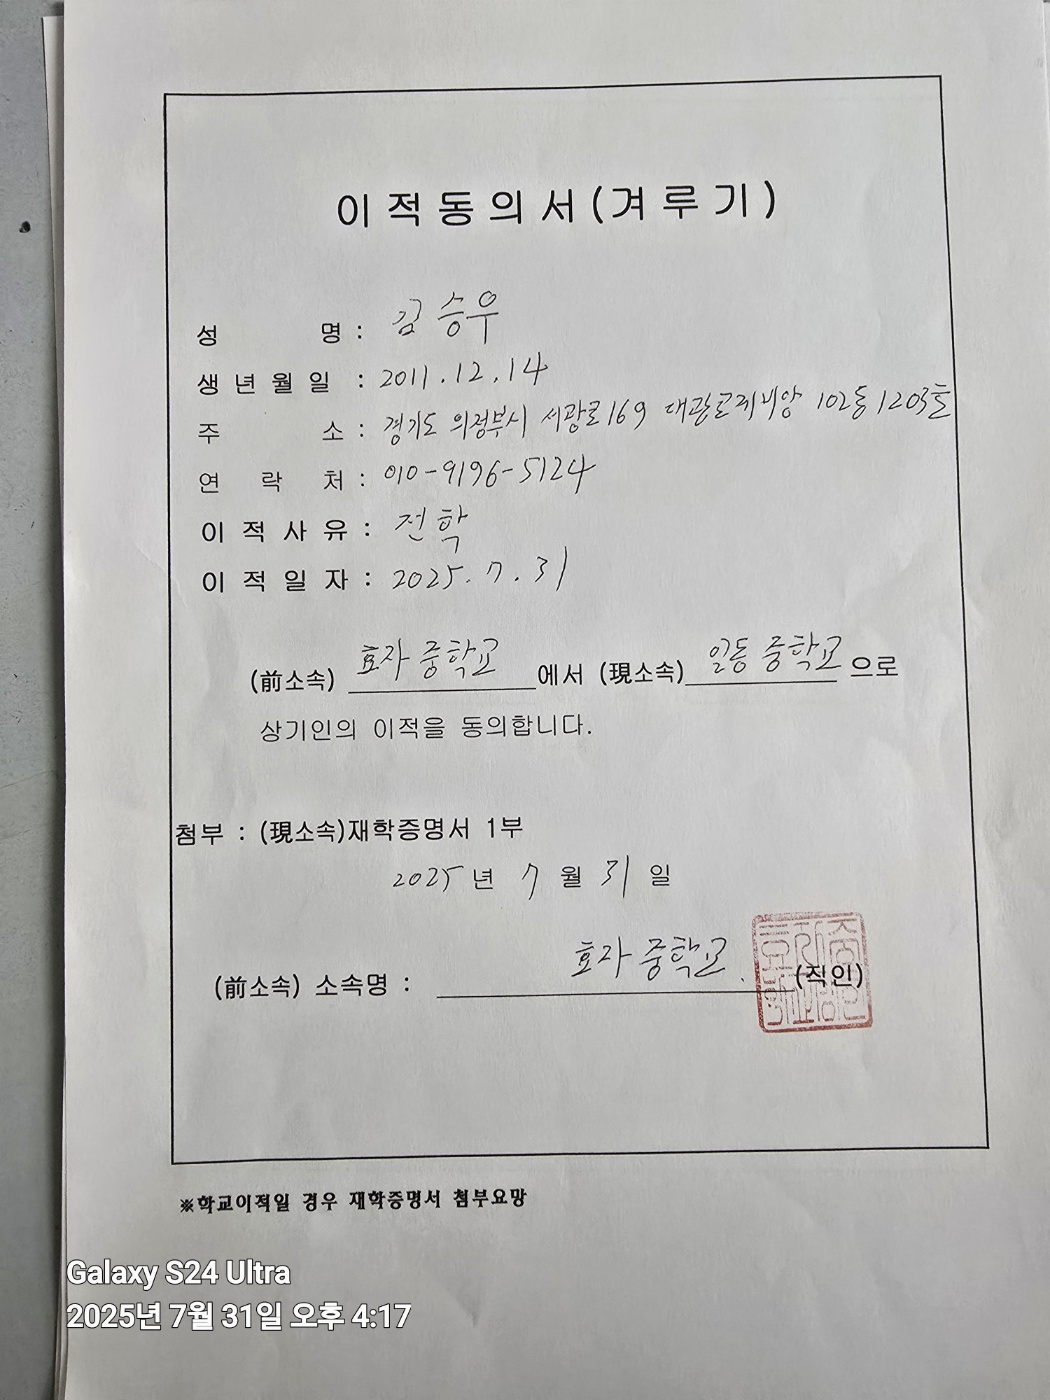 이적동의서(겨루기)
성 명 : 김승우
생년월일 : 2011.12.14
주 소 : 경기도 의정부시 서광로169 대광로제비앙 102동 1203호
연 락 처 : 010-9196-5124
이적사유 : 전학
이적일자 : 2025. 7. 31
(前소속) 효자중학교 에서 (現소속) 일동중학교 으로
상기인의 이적을 동의합니다.
첨부 : (現소속)재학증명서 1부
2025년 7월 31일
(前소속) 소속명 : 효자중학교. (직인)
※학교이적일 경우 재학증명서 첨부요망
Galaxy S24 Ultra
2025년 7월 31일 오후 4:17